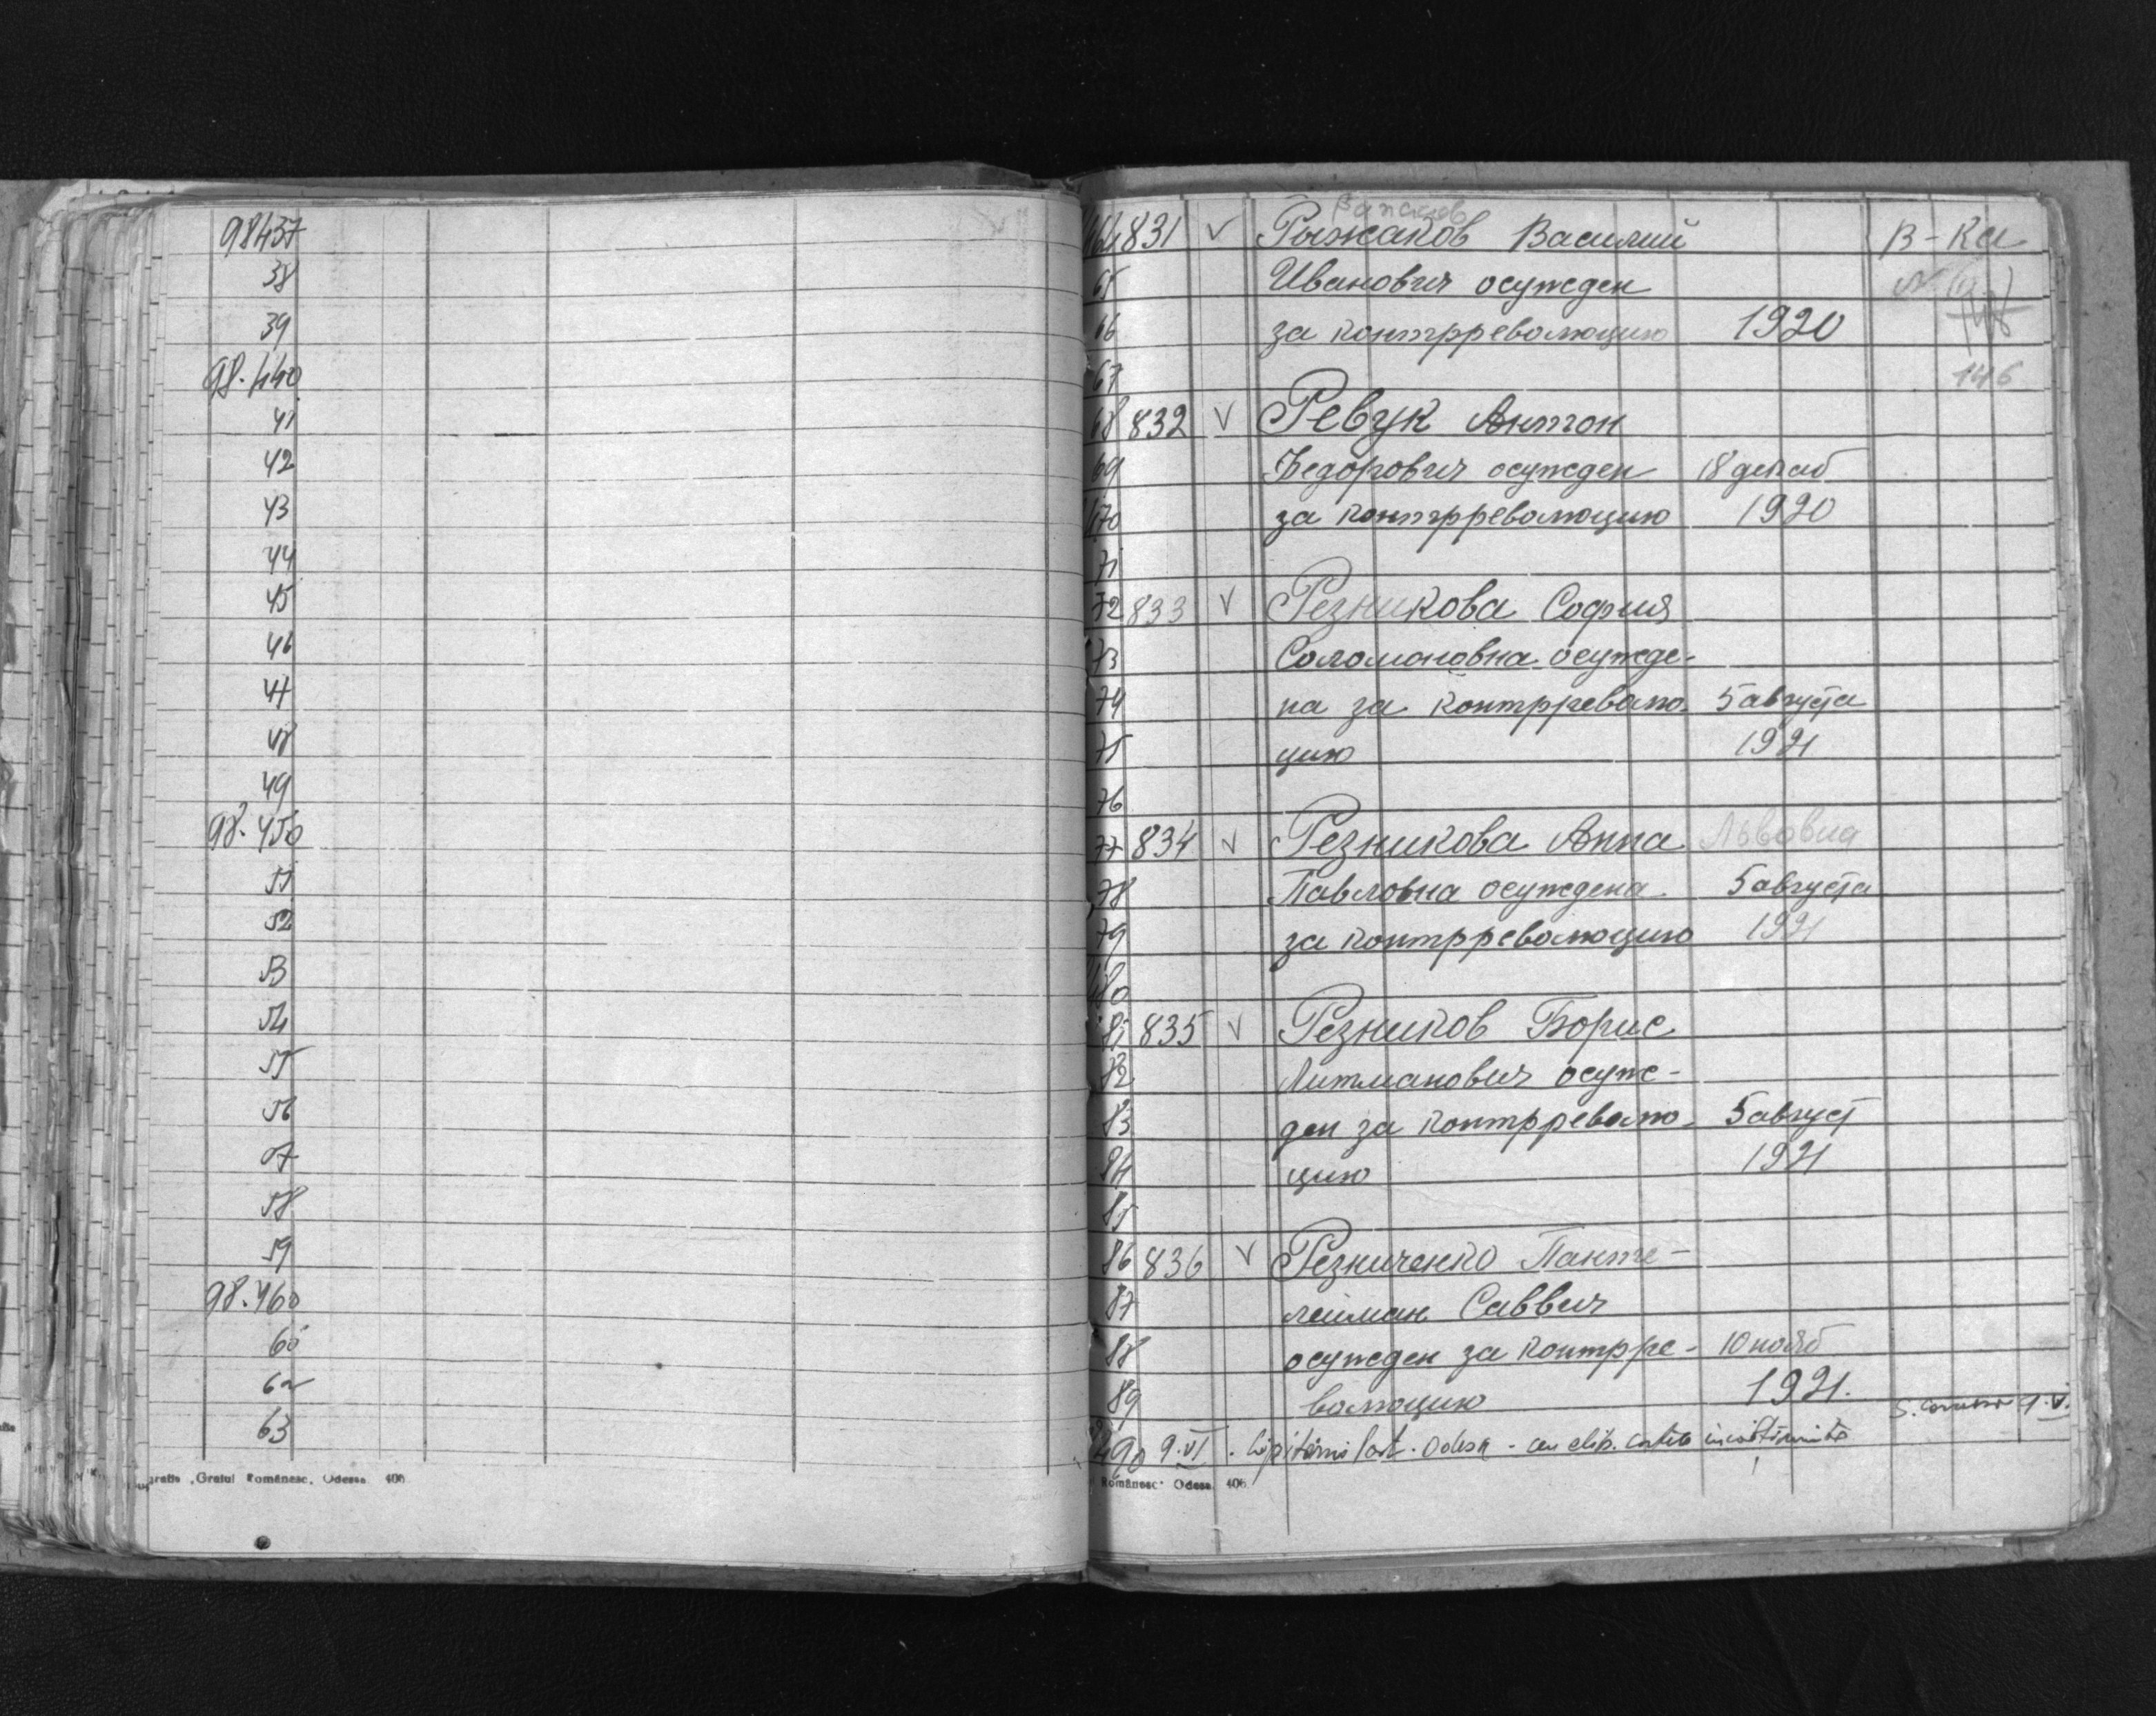 98437
38
39
98.440
41
42
43
44
45
46
47
48
49
98.450
51
52
53
54
55
56
57
58
59
98.460
61
62
63
"Graiul Românesc", Odessa 406
464 831 V Рыжаков Василий В-ка
65 Иванович осужден
66 за контрреволюцию 1920
67 146
68 832 V Ревук Антон
69 Федорович осужден 18 декаб
470 за контрреволюцию 1920
71
72 833 V Резникова София
73 Соломоновна осужде-
74 на за контрреволю- 5 августа
75 цию 1921
76
77 834 V Резникова Анна Львовна
78 Павловна осуждена 5 августа
79 за контрреволюцию 1921
480
81 835 V Резников Борис
82 Литманович осуж-
83 ден за контрреволю- 5 август
84 цию 1921
85
86 836 V Резниченко Панте-
87 лейман Саввич
88 осужден за контрре- 10 нояб
89 волюцию 1921.
490 9.VI Odesa
Românesc" Odesa 406